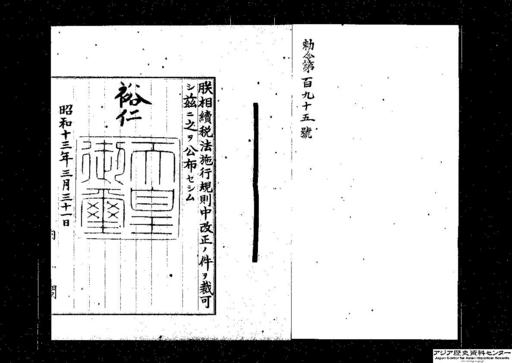 勅令第百九十五號
朕相續税法施行規則中改正ノ件ヲ裁可
シ茲ニ之ヲ公布セシム
裕仁
天皇
御璽
昭和十三年三月三十一日
内閣
アジア歴史資料センター
Japan Center for Asian Historical Records